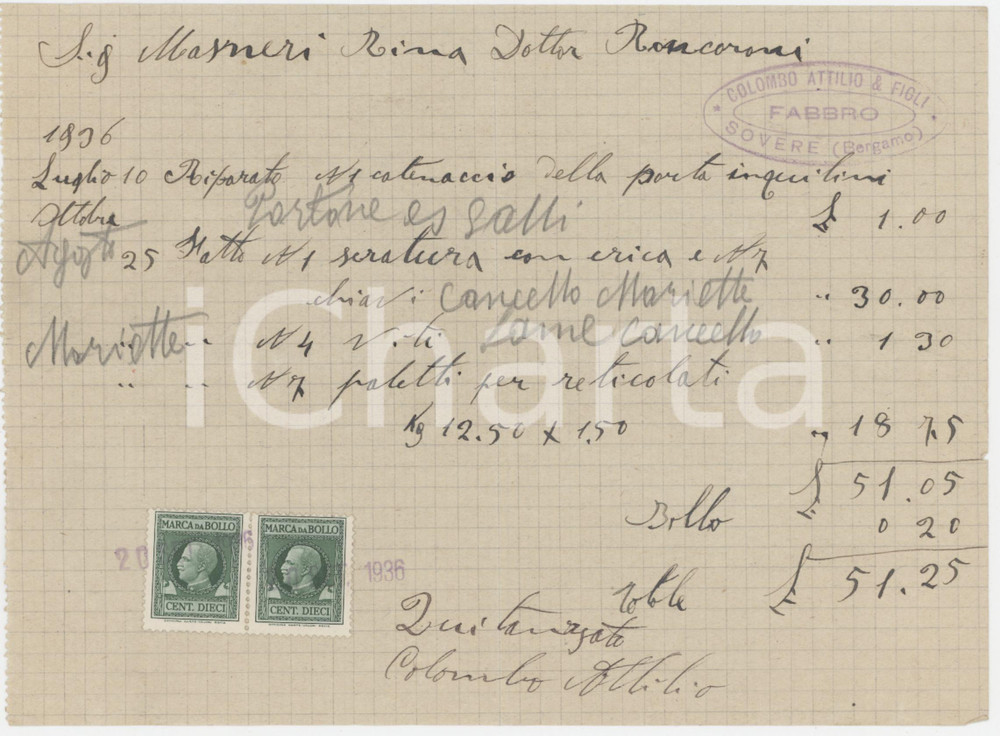 Sig Masneri Rina Dottor Roncoroni
COLOMBO ATTILIO & FIGLI
FABBRO
SOVERE (Bergamo)
1936
Luglio 10 Riparato N 1 catenaccio della porta inquilini
Portone es Galli £ 1.00
Ottobre
Agosto 25 Fatto N 1 seratura con crica e N 7
chiavi Cancello Mariette " 30.00
Mariette " " N 4 Viti Lame Cancello " 1 30
" " N 7 paletti per reticolati
Kg 12.50 x 1.50 " 18 75
£ 51.05
Bollo 0 20
Totale £ 51.25
MARCA DA BOLLO MARCA DA BOLLO
CENT. DIECI CENT. DIECI
20 1936
Quitanzato
Colombo Attilio
iCharta